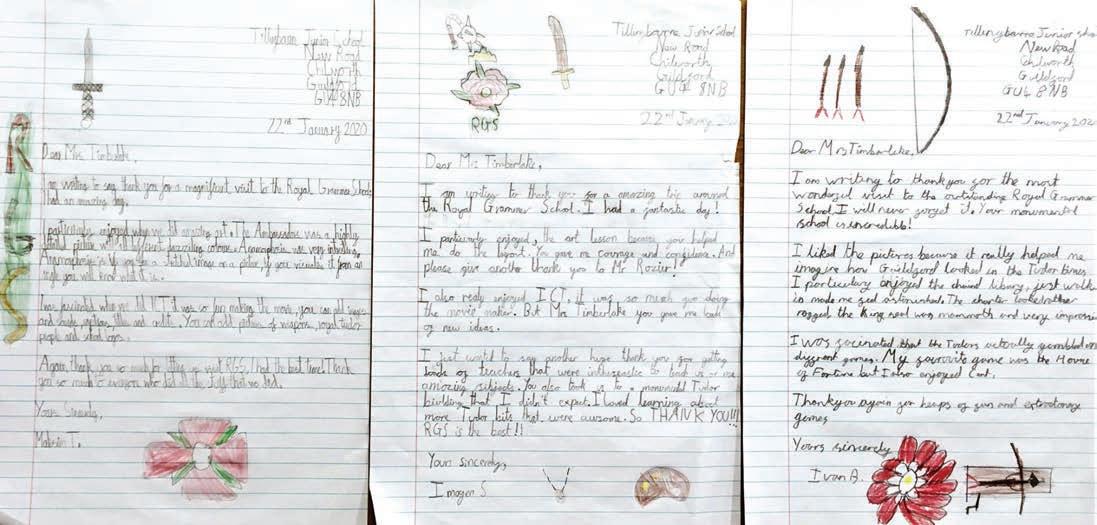 Tillingbourne Junior School
New Road
Chilworth
Guildford
GU4 8NB
22nd January 2020
Dear Mrs Timberlake,
I am writing to say thank you for a magnificent visit to the Royal Grammar School
had an amazing day.
I particularly enjoyed when we did
The Ambassadors was a highly
detailed picture with
Anamorphosis was very
Anamorphosis is if you for a image or a picture, if you visualise it from an
angle you will know what it is.
I was fascinated when we did IT. It was so fun making the movie, you can add images
and songs, captions, titles and credits. You can add pictures of weapons, royal tudor
people and
Again thank you so much for letting us visit RGS, I had the best time! Thank
you so much to everyone who did all the stuff that we did.
Yours Sincerely,
T.
Tillingbourne Junior School
New Road
Chilworth
Guildford
GU4 8NB
RGS
22nd January 2020
Dear Mrs Timberlake,
I am writing to thank you for a amazing trip around
the Royal Grammer School. I had a fantastic day!
I particulary enjoyed, the art lesson because you helped
me do the layout. You gave me courage and confidence. And
please give another thank you to Mr Rozier!
I also realy enjoyed ICT, it was so much fun doing
the movie maker. But Mrs Timberlake you gave me loads
of new ideas.
I just wanted to say another huge thank you for getting
loads of teachers that were to teach us
amazing subjects. You also took us to a monumental Tudor
building that I didn't expect. I loved learning about
more Tudor bits that were awsome. So THANK YOU!!!
RGS is the best!!
Yours sincerely,
Imogen S
Tillingbourne Junior School
New Road
Chilworth
Guildford
GU4 8NB
22nd January 2020
Dear Mrs Timberlake,
I am writing to thankyou for the most
wonderful visit to the outstanding Royal Grammar
School. I will never forget it. Your monumental
school is incredible!
I liked the pictures because it really helped me
imagine how Guildford looked in the Tudor times
I particulary enjoyed the chained library, just walking
in made me feel astonished. The charter looked rather
ragged the King seal was mammoth and very impressive
I was facinated that the Tudors actually gambled on
different games. My favourite game was the House
of Fortune but I also enjoyed Cent.
Thankyou again for heaps of fun and
games
Yours sincerely
Ivan A.